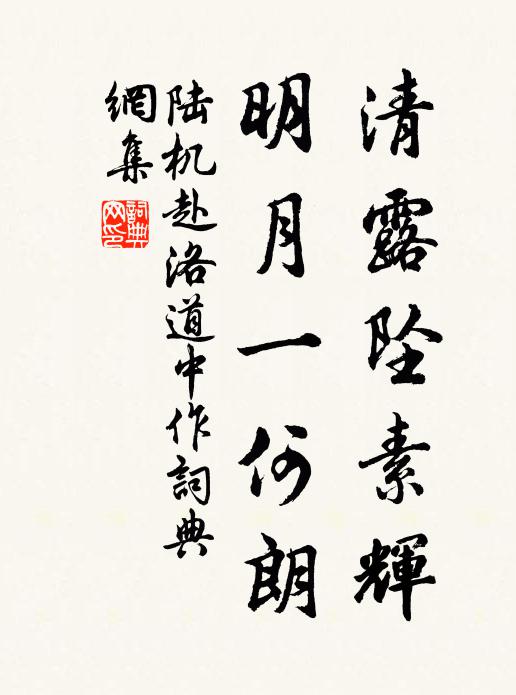 清露坠素輝
明月一何朗
陆机赴洛道中作詞典
網集
詞典
网印